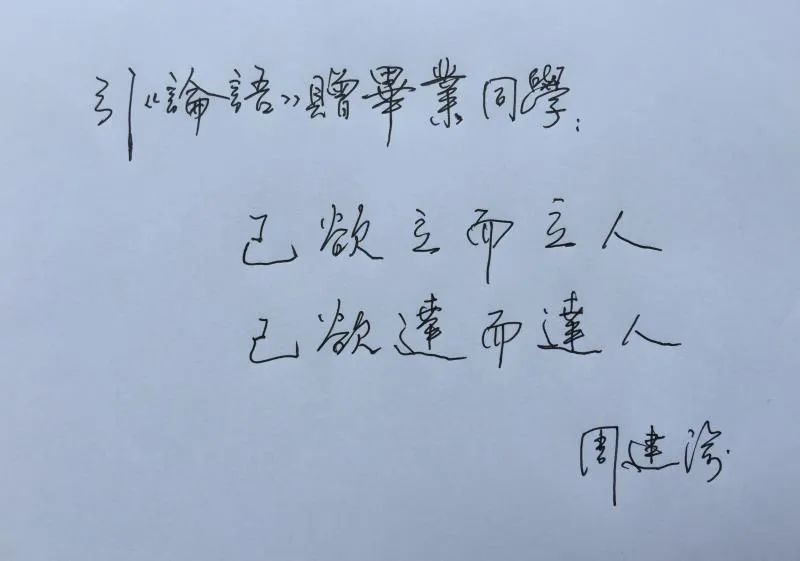 引《論語》贈畢業同學:
己欲立而立人
己欲達而達人
周建渝